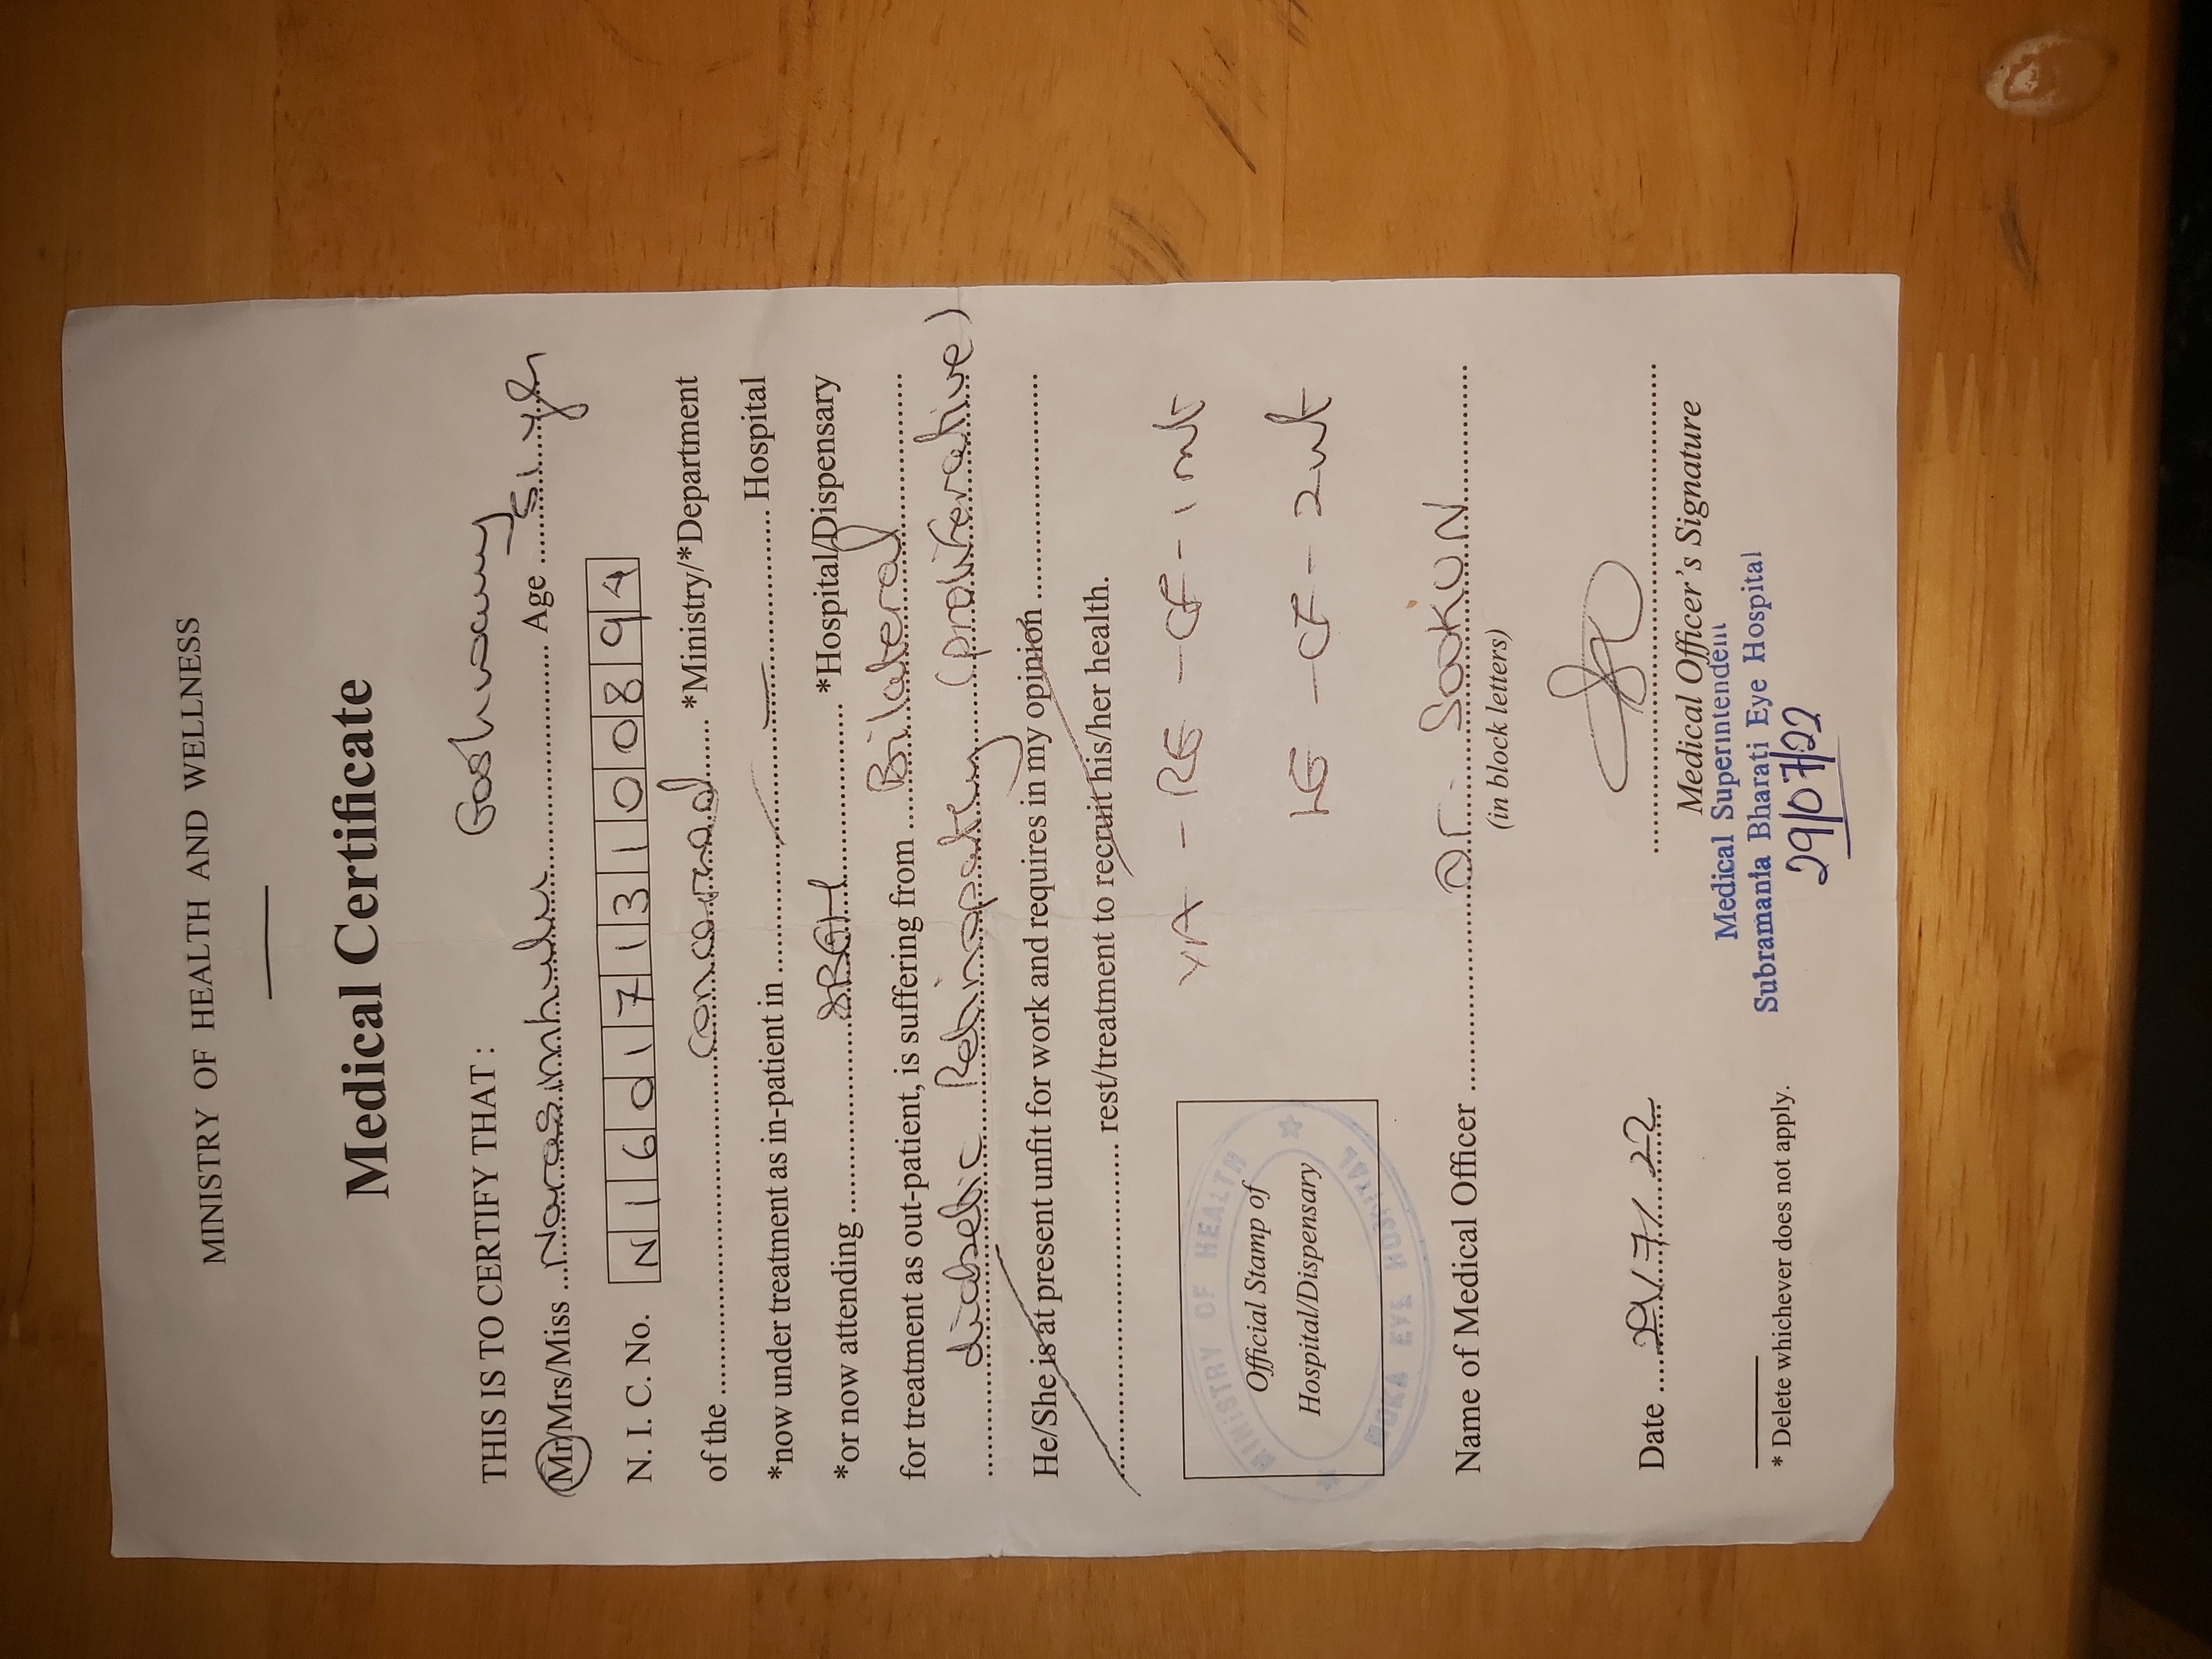 MINISTRY OF HEALTH AND WELLNESS
Medical Certificate
THIS IS TO CERTIFY THAT :
Goshwamy
Mr/Mrs/Miss ... Narasimhulu ... Age ... 51 yr
N. I. C. No. N 1 6 0 1 7 1 3 1 0 0 8 9 4
of the ... concerned ... *Ministry/*Department
*now under treatment as in-patient in ... Hospital
*or now attending ... SBEH ... *Hospital/Dispensary
for treatment as out-patient, is suffering from ... Bilateral
diabetic Retinopathy (proliferative)
He/She is at present unfit for work and requires in my opinion ...
... rest/treatment to recruit his/her health.
VA - RE - CF - 1 mt
LE - CF - 2 mt
Official Stamp of
Hospital/Dispensary
MINISTRY OF HEALTH
MOKA EYE HOSPITAL
Name of Medical Officer ... Dr. SOOKUN
(in block letters)
Date ... 29/7/22
Medical Officer's Signature
Medical Superintendent
Subramania Bharati Eye Hospital
29/07/22
* Delete whichever does not apply.